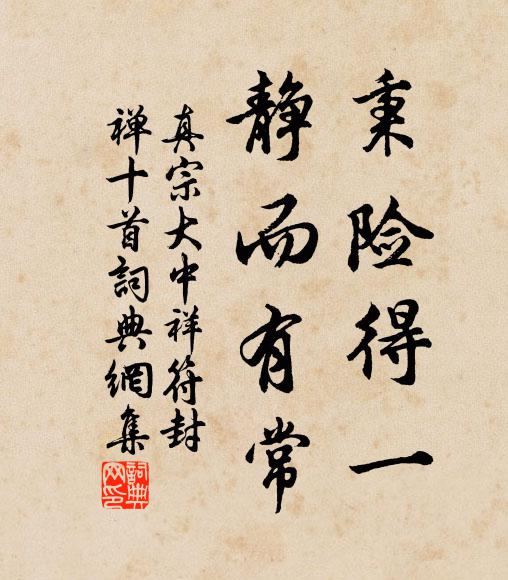 秉险得一
静而有常
真宗大中祥符封
禅十首詞典網集
詞典
网印